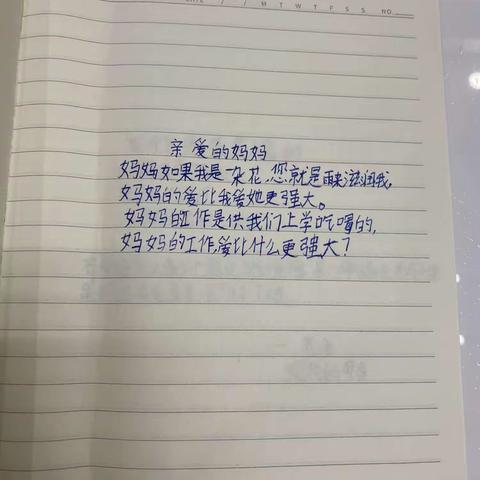 DATE / / M T W T F S S NO.
亲爱的妈妈
妈妈如果我是一朵花,您就是雨来滋润我,
妈妈的爱比我爱她更强大。
妈妈的工作是供我们上学吃喝的,
妈妈的工作,爱比什么更强大?